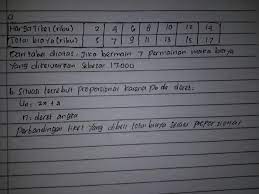 Harga Tiket (ribu) 2 4 6 8 10 12 14
Total biaya (ribu) 5 7 9 11 13 15 17
Dari tabel diatas, Jika bermain 7 permainan maka biaya
yang dikeluarkan sebesar 17.000
b. Situasi tersebut proporsional karena pada deret:
Un = 2n + 3
n: deret angka
Perbandingan tiket yang dibeli total biaya sesuai proporsional